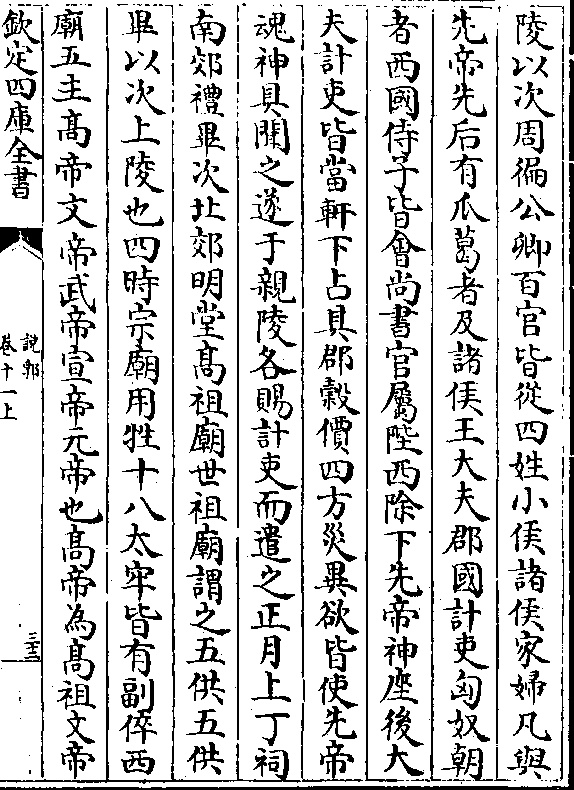 陵以次周徧公卿百官皆從四姓小侯諸侯家婦凡與
先帝先后有瓜葛者及諸侯王大夫郡國計吏匈奴朝
者西國侍子皆會尚書官屬陛西除下先帝神座後大
夫計吏皆當軒下占其郡穀價四方災異欲皆使先帝
魂神具聞之遂于親陵各賜計吏而遣之正月上丁祠
南郊禮畢次北郊明堂髙祖廟世祖廟謂之五供五供
畢以次上陵也四時宗廟用牲十八太牢皆有副倅西
廟五主髙帝文帝武帝宣帝元帝也髙帝為髙祖文帝
欽定四庫全書
說郛
卷十一上
三十三